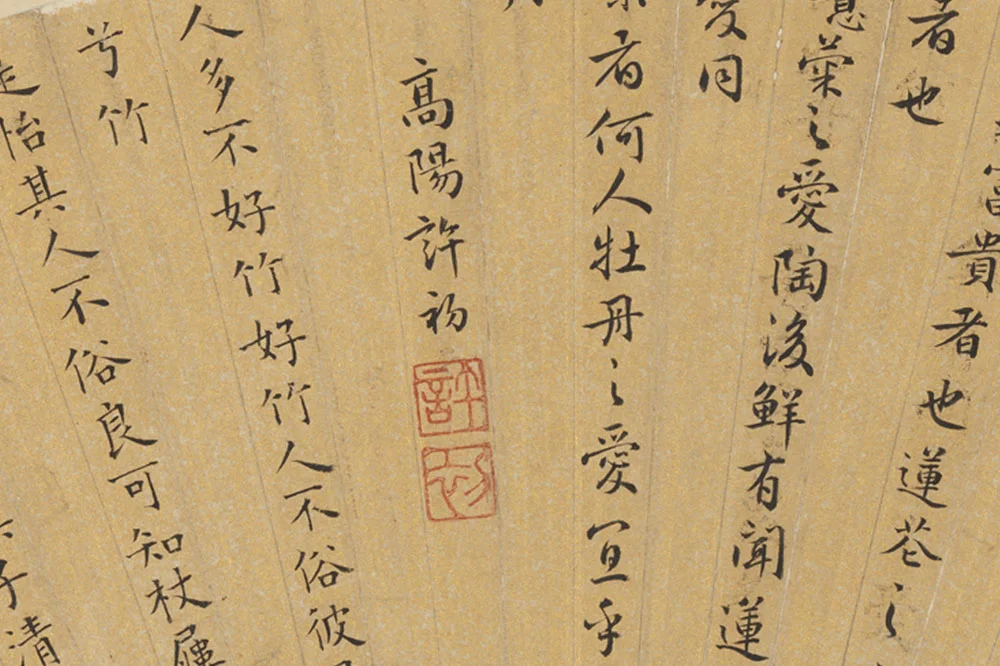 富貴者也蓮花之
者也
噫菊之愛陶後鮮有聞蓮
愛同
者何人牡丹之愛宜乎
高陽許初
許初
人多不好竹好竹人不俗彼
兮竹
怡其人不俗良可知杖屨
子清